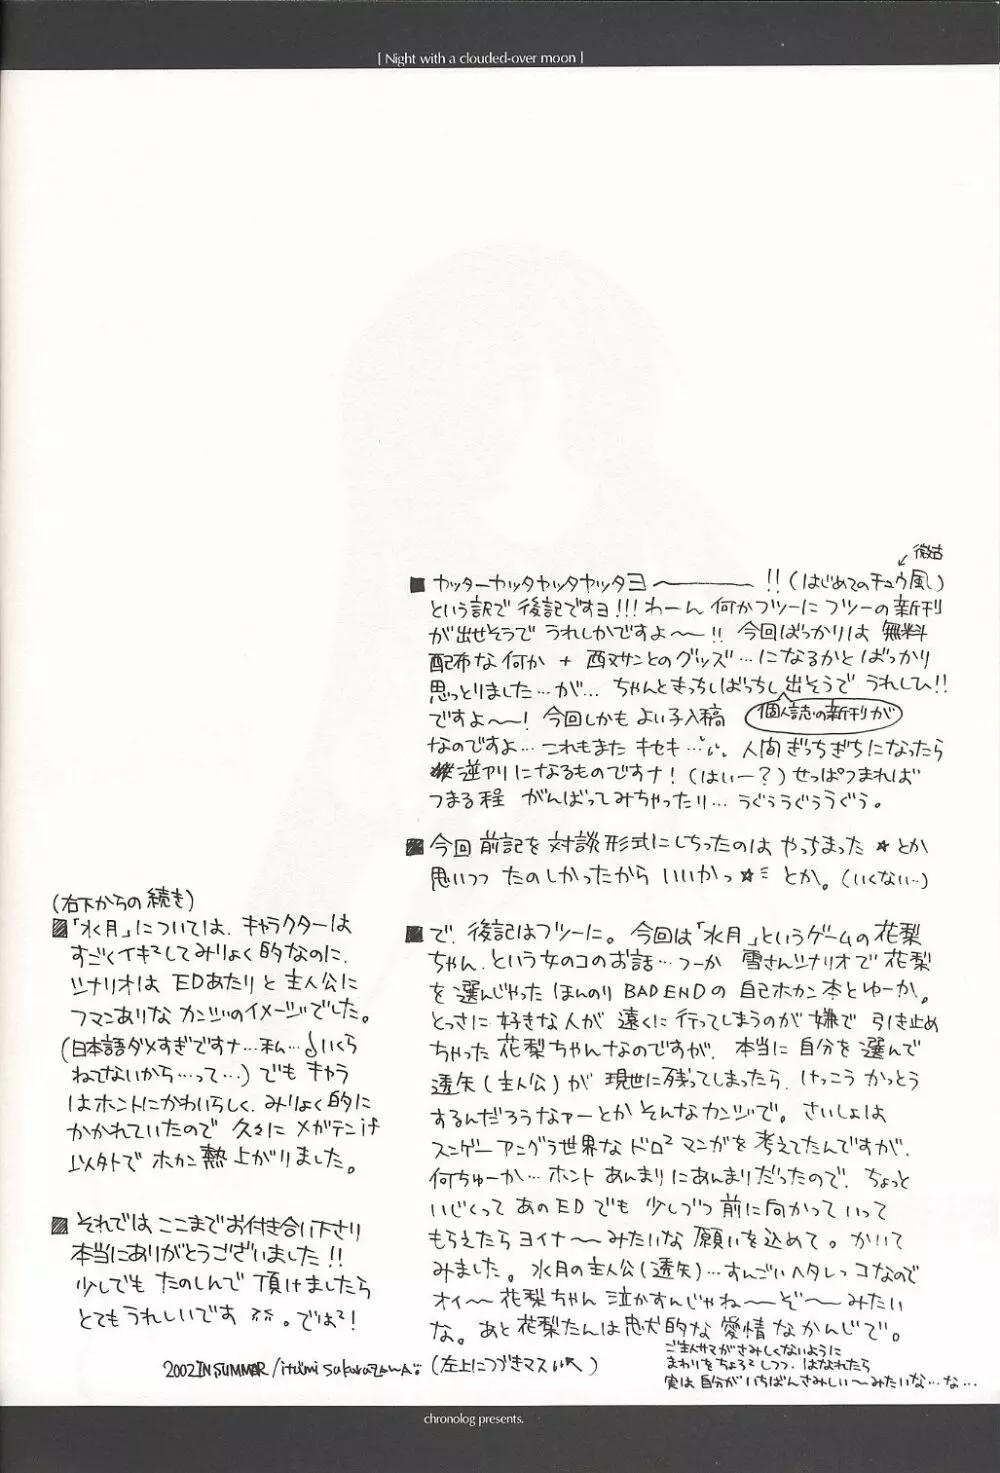 [ Night with a clouded-over moon ]
微古
■ ヤッターヤッタヤッタヤッタヨ————!!(はじめてのチュウ風)
という訳で 後記ですヨ!!! わーん 何かフツーに フツーの新刊
が出せそうで うれしかですよ〜!! 今回ばっかりは 無料
配布な何か + 酉又サンとのグッズ…になるかとばっかり
思っとりました…が… ちゃんときっちしばっちし 出そうで うれしひ!!
個人誌の新刊が
ですよ〜! 今回しかも よい子入稿
なのですよ… これもまた キセキ…。人間 ぎっちぎちになったら
逆アリになるものですナ! (はぃー?) せっぱつまれば
つまる程 がんばってみちゃったり… うぐぅうぐぅうぐぅ。
■ 今回 前記を 対談形式にしちったのは やっちまった★とか
思いつつ たのしかったから いいかっ★ミ とか。(いくない…)
■ で、後記はフツーに。今回は「水月」というゲームの花梨
ちゃん、という女のコのお話…つーか 雪さんシナリオで 花梨
を選んじゃった ほんのり BAD ENDの 自己ホカン本とゆーか。
とっさに 好きな人が 遠くに行ってしまうのが 嫌で 引き止め
ちゃった 花梨ちゃんなのですが、本当に 自分を選んで
透矢(主人公)が 現世に残ってしまったら、けっこう かっとう
するんだろうなァーとか そんなカンジで。さいしょは
スンゲー アングラ世界な ドロ² マンガを 考えてたんですが、
何ちゅーか… ホント あんまりにあんまりだったので、ちょっと
いじくって あのED でも 少しづつ 前に向かって いって
もらえたら ヨイナ〜みたいな 願いを込めて。かいて
みました。水月の主人公(透矢)…すんごいヘタレっコなので
オイ〜 花梨ちゃん 泣かすんじゃね〜ぞ〜みたい
な。あと 花梨たんは 忠犬的な 愛情 なかんじで。
ご主人サマがさみしくないように
まわりをちょろ²しつつ、はなれたら
実は自分がいちばんさみしい〜みたいな…な…
(左上につづきマス)
(右下からの続き)
■「水月」については、キャラクターは
すごくイキ²してみりょく的なのに、
シナリオは EDあたりと 主人公に
フマンありな カンジのイメージでした。
(日本語ダメすぎですナ…私…いくら
ねてないから…って…) でも キャラ
はホントにかわいらしく、みりょく的に
かかれていたので 久々に メガテンif
以外で ホカン熱 上がりました。
■ それでは ここまでお付き合い下さり
本当にありがとうございました!!
少しでも たのしんで 頂けましたら
とてもうれしいです。では²!
2002 IN SUMMER / itsumi sakurazawa
chronolog presents.